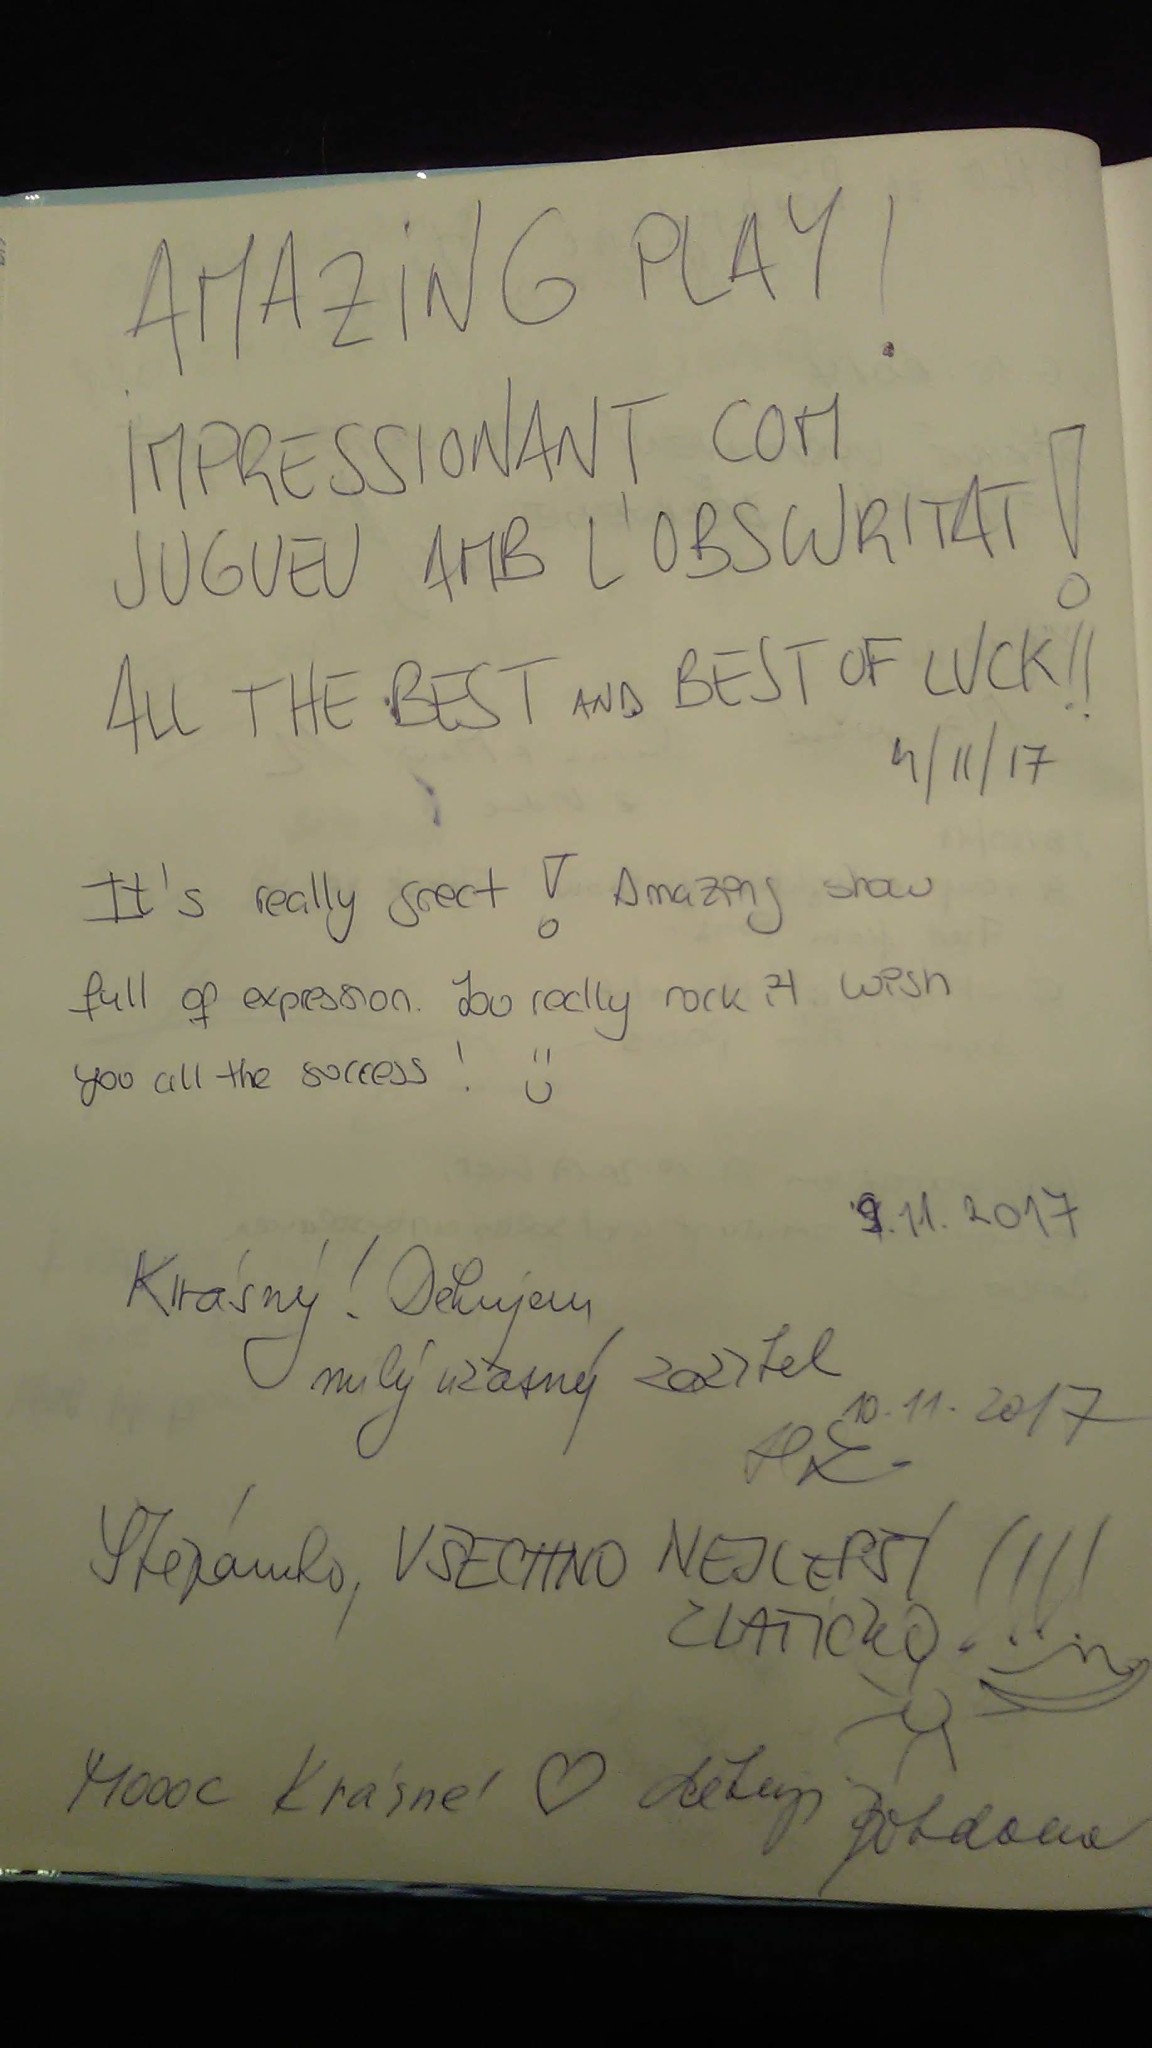 AMAZING PLAY!
IMPRESSIONANT COM
JUGUEU AMB L'OBSCURITAT!
ALL THE BEST AND BEST OF LUCK!!
4/11/17
It's really great! Amazing show
full of expression. You really rock it I wish
you all the success! :)
9.11.2017
Krásný! Děkujem
milý úžasný zážitek
10.11.2017
Štěpánko, VŠECHNO NEJLEPŠÍ !!!!
ZLATÍČKO.
Mooc krásné ♡ děkuji